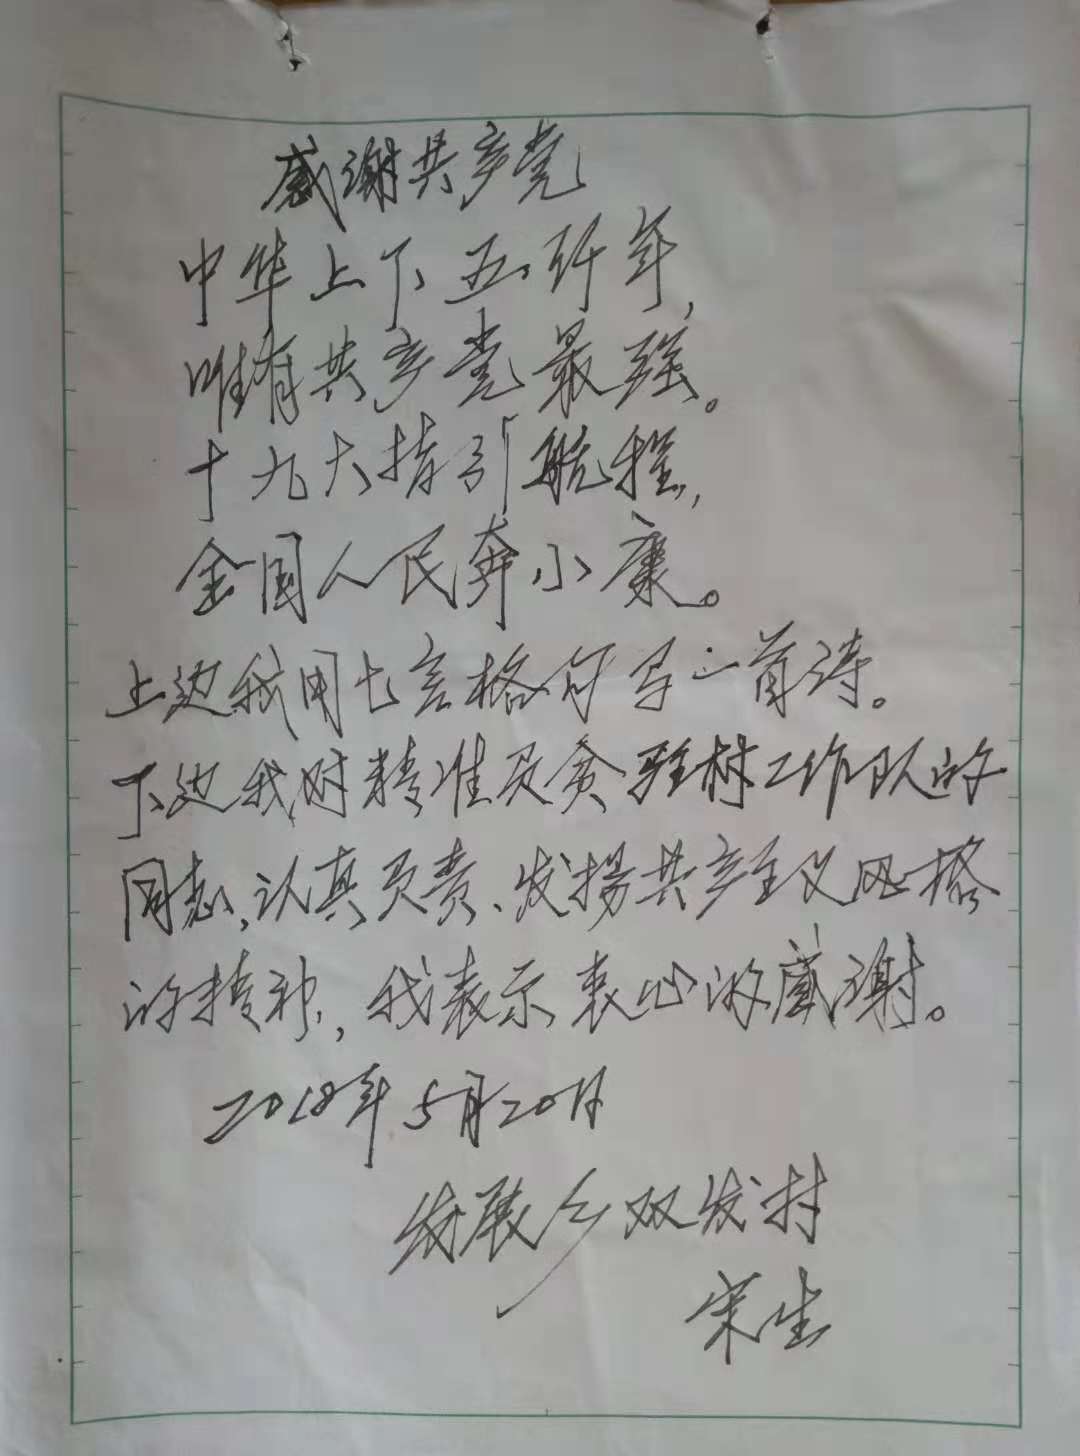 感谢共产党
中华上下五仟年,
唯有共产党最强。
十九大指引航程,
全国人民奔小康。
上边我用七言格 写一首诗。
下边我对精准 贫驻村工作队的
同志,认真负责、发扬共产主义风格
的精神,我表示衷心的感谢。
2018年5月20日
发展乡双发村
宋生